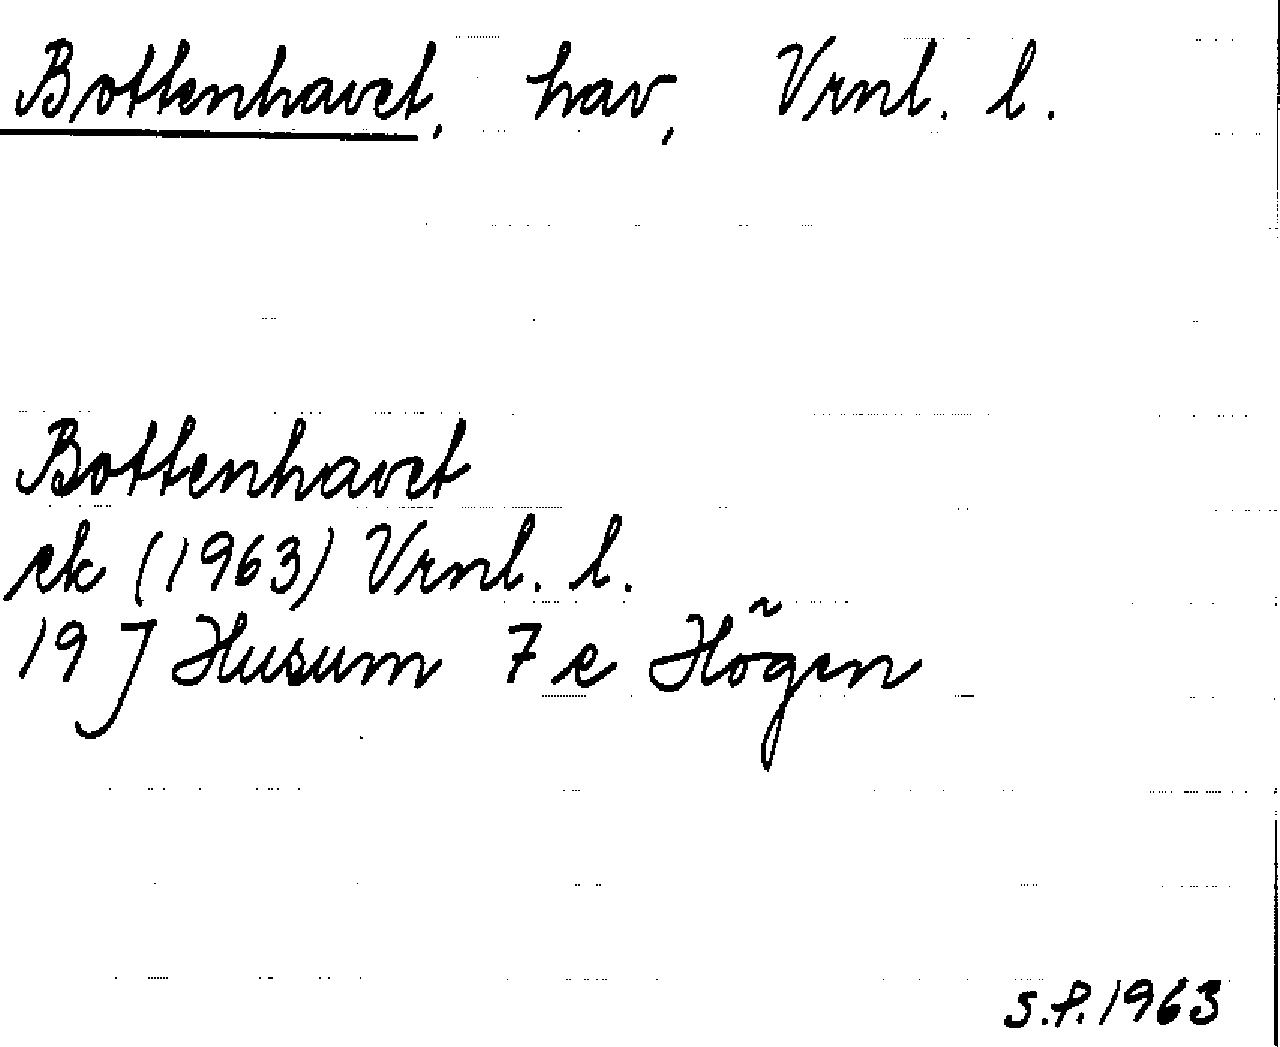 Bottenhavet, hav, Vrnl. l.
Bottenhavet
ek (1963) Vrnl. l.
19 J Husum 7 e Högen
S.P. 1963